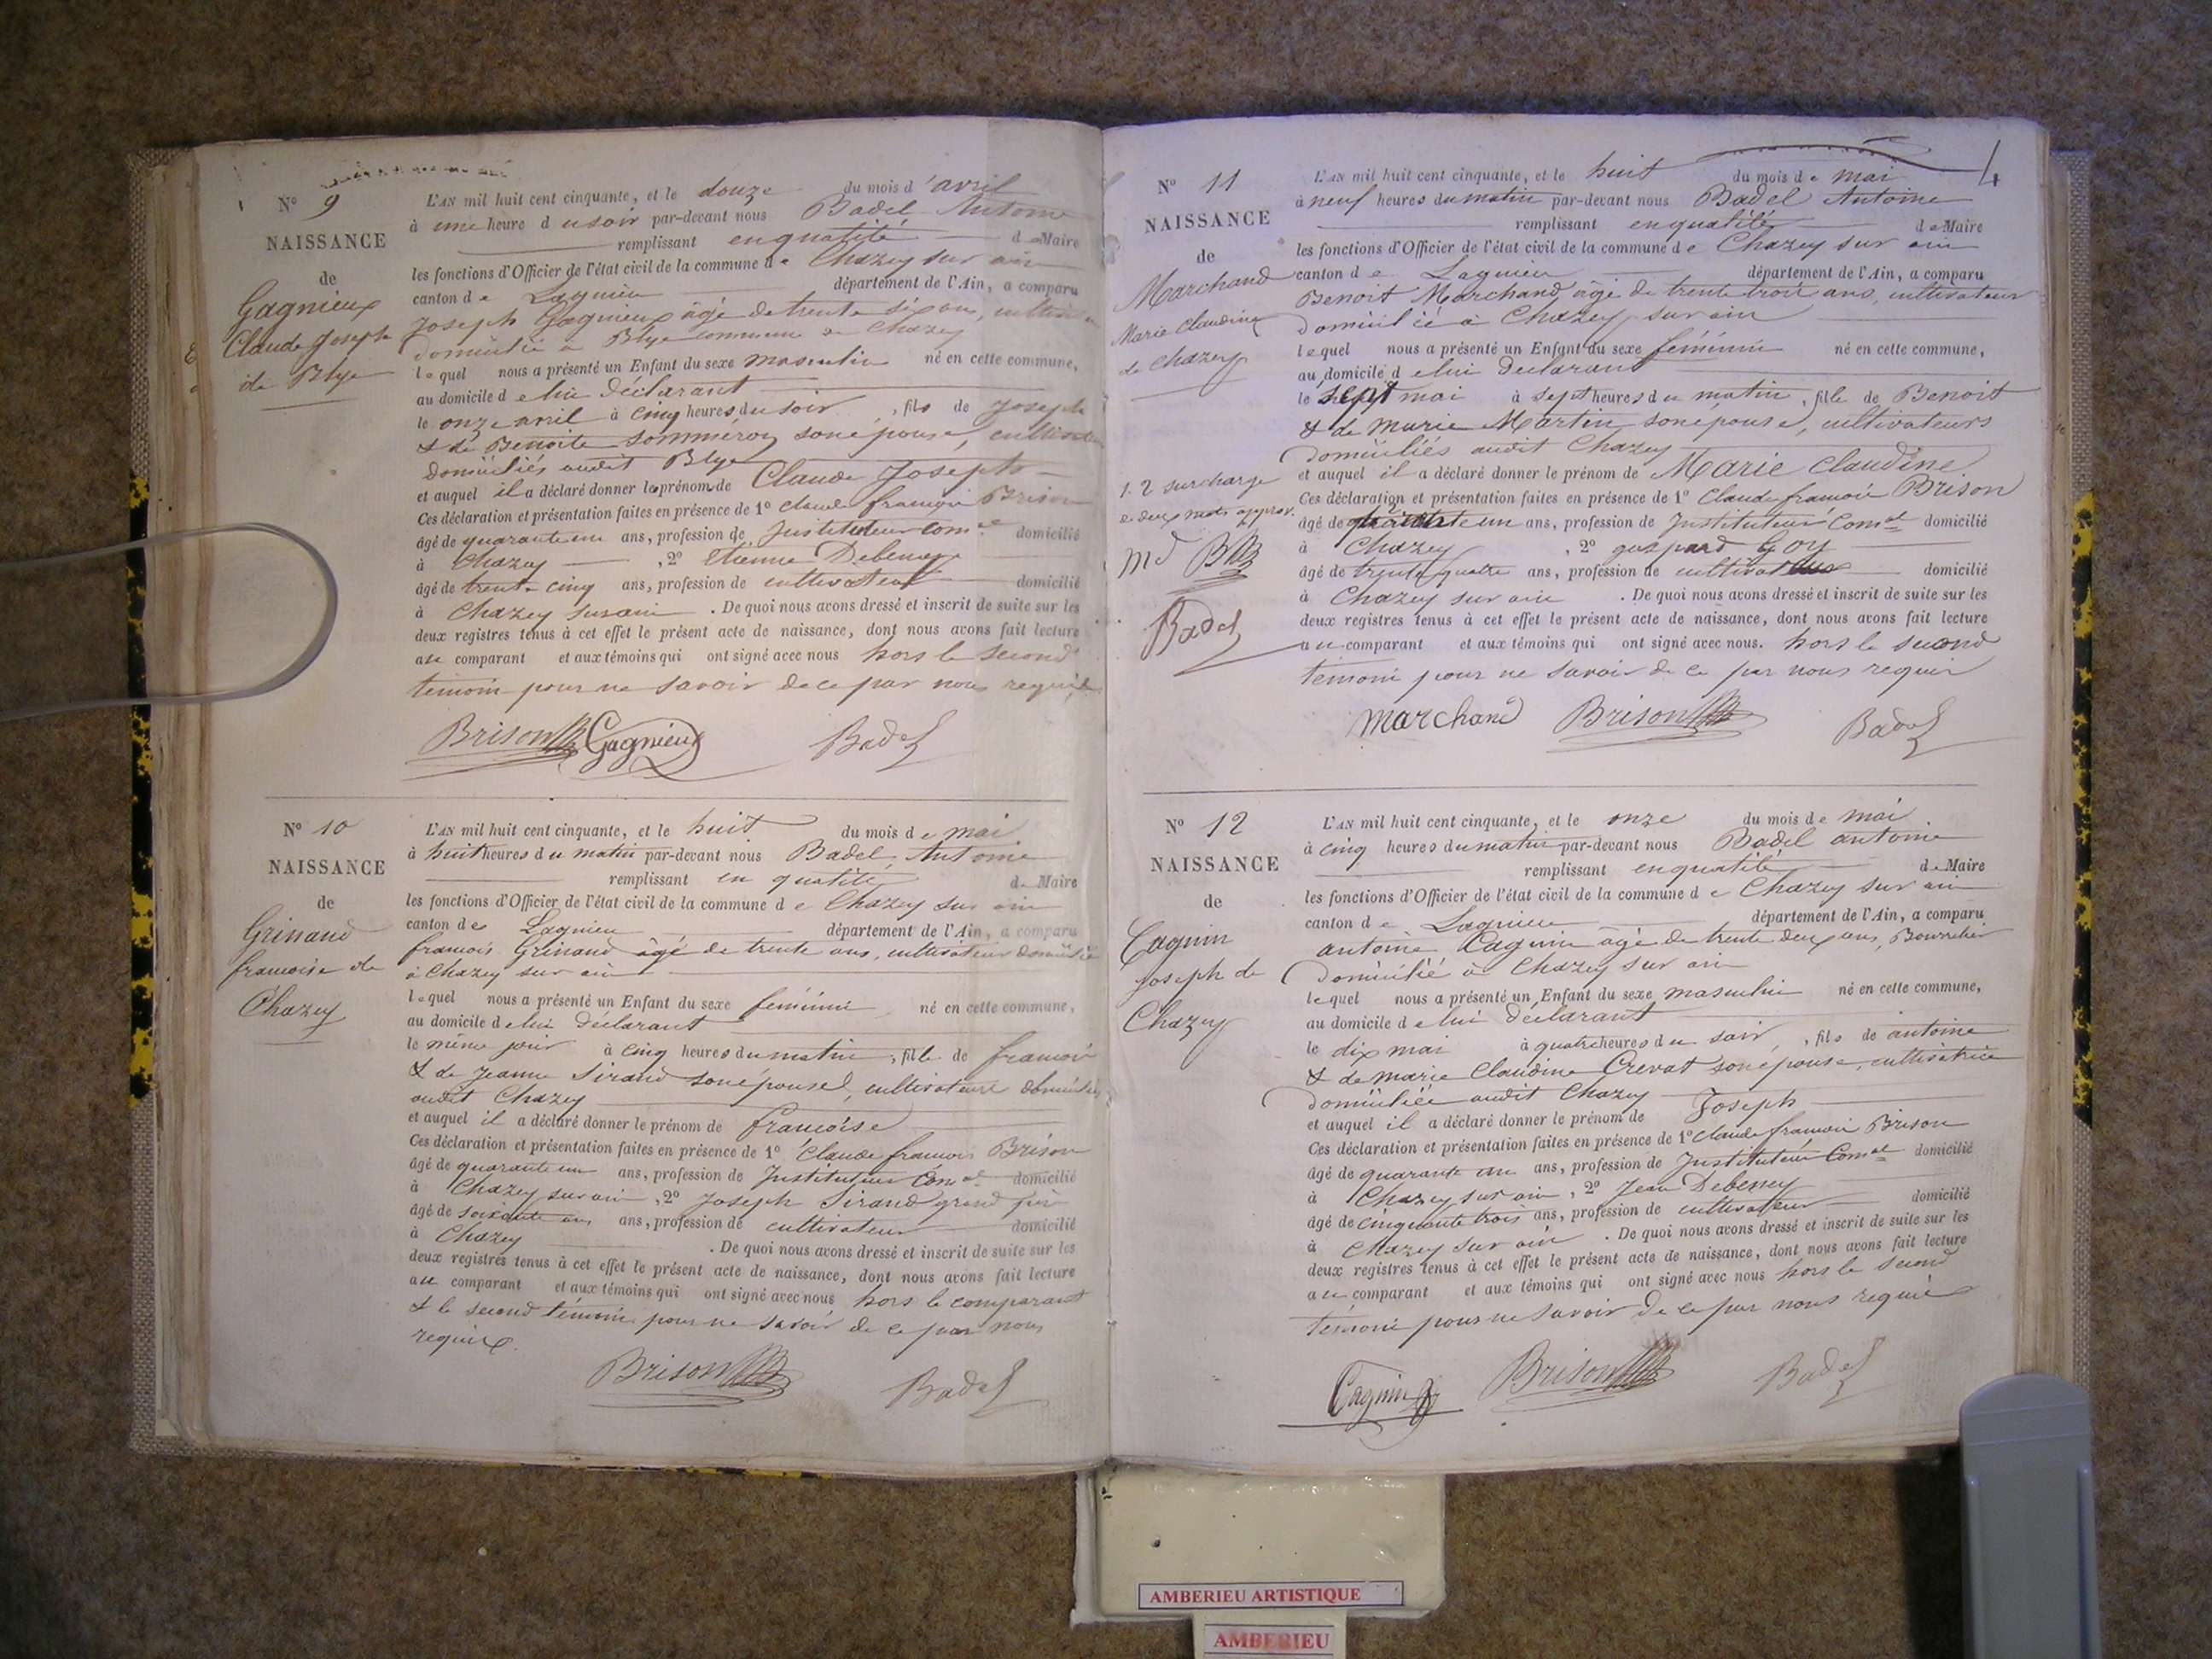 N° 9
NAISSANCE
de
Gagnieux
Claude Joseph
de Blye
L'AN mil huit cent cinquante, et le douze du mois d'avril
à une heure du soir par-devant nous Badel Antoine
remplissant en qualité de Maire
les fonctions d'Officier de l'état civil de la commune de Chazey sur ain
canton de Lagnieu département de l'Ain, a comparu
Joseph Gagnieux âgé de trente six ans,
domicilié à Blye commune de Chazey
lequel nous a présenté un Enfant du sexe masculin né en cette commune,
au domicile de lui déclarant
le onze avril à cinq heures du soir, fils de Joseph
& de Benoite Sommeroy son épouse,
domiciliés audit Blye
et auquel il a déclaré donner le prénom de Claude Joseph
Ces déclaration et présentation faites en présence de 1° Claude françois Brison
âgé de quarante un ans, profession de Instituteur Com.al domicilié
à Chazey, 2° Etienne Debeney
âgé de trente cinq ans, profession de cultivateur domicilié
à Chazey sur ain. De quoi nous avons dressé et inscrit de suite sur les
deux registres tenus à cet effet le présent acte de naissance, dont nous avons fait lecture
au comparant et aux témoins qui ont signé avec nous hors le second
témoin pour ne savoir de ce par nous requis
Brison Gagnieux Badel
N° 10
NAISSANCE
de
Grinand
francoise de
Chazey
L'AN mil huit cent cinquante, et le huit du mois de mai
à huit heures du matin par-devant nous Badel Antoine
remplissant en qualité de Maire
les fonctions d'Officier de l'état civil de la commune de Chazey sur ain
canton de Lagnieu département de l'Ain, a comparu
francois Grinand âgé de trente ans, cultivateur domicilié
à Chazey sur ain
lequel nous a présenté un Enfant du sexe féminin né en cette commune,
au domicile de lui déclarant
le même jour à cinq heures du matin, fille de francois
& de Jeanne Sirand son épouse, cultivateurs domiciliés
audit Chazey
et auquel il a déclaré donner le prénom de francoise
Ces déclaration et présentation faites en présence de 1° Claude francois Brison
âgé de quarante un ans, profession de Instituteur Com.al domicilié
à Chazey sur ain, 2° Joseph Sirand grand père
âgé de soixante ans, profession de cultivateur domicilié
à Chazey. De quoi nous avons dressé et inscrit de suite sur les
deux registres tenus à cet effet le présent acte de naissance, dont nous avons fait lecture
au comparant et aux témoins qui ont signé avec nous hors le comparant
& le second témoin pour ne savoir de ce par nous
requis.
Brison Badel
4
N° 11
NAISSANCE
de
Marchand
Marie Claudine
de Chazey
1. 2 surcharge
de deux mots approv.
Md BB
Badel
L'AN mil huit cent cinquante, et le huit du mois de mai
à neuf heures du matin par-devant nous Badel Antoine
remplissant en qualité de Maire
les fonctions d'Officier de l'état civil de la commune de Chazey sur ain
canton de Lagnieu département de l'Ain, a comparu
Benoit Marchand âgé de trente trois ans, cultivateur
domicilié à Chazey sur ain
lequel nous a présenté un Enfant du sexe féminin né en cette commune,
au domicile de lui déclarant
le sept mai à sept heures du matin, fille de Benoit
& de Marie Martin son épouse, cultivateurs
domiciliés audit Chazey
et auquel il a déclaré donner le prénom de Marie Claudine
Ces déclaration et présentation faites en présence de 1° Claude francois Brison
âgé de quarante un ans, profession de Instituteur Com.al domicilié
à Chazey, 2° gaspard Goy
âgé de trente quatre ans, profession de cultivateur domicilié
à Chazey sur ain. De quoi nous avons dressé et inscrit de suite sur les
deux registres tenus à cet effet le présent acte de naissance, dont nous avons fait lecture
au comparant et aux témoins qui ont signé avec nous. hors le second
témoin pour ne savoir de ce par nous requis
Marchand Brison Badel
N° 12
NAISSANCE
de
Cagnin
Joseph de
Chazey
L'AN mil huit cent cinquante, et le onze du mois de mai
à cinq heures du matin par-devant nous Badel antoine
remplissant en qualité de Maire
les fonctions d'Officier de l'état civil de la commune de Chazey sur ain
canton de Lagnieu département de l'Ain, a comparu
antoine Cagnin âgé de trente deux ans, Bourrelier
domicilié à Chazey sur ain
lequel nous a présenté un Enfant du sexe masculin né en cette commune,
au domicile de lui déclarant
le dix mai à quatre heures du soir, fils de antoine
& de marie Claudine Crevat son épouse, cultivatrice
domiciliée audit Chazey
et auquel il a déclaré donner le prénom de Joseph
Ces déclaration et présentation faites en présence de 1° Claude francois Brison
âgé de quarante un ans, profession de Instituteur Com.al domicilié
à Chazey sur ain, 2° Jean Debeney
âgé de cinquante trois ans, profession de cultivateur domicilié
à Chazey sur ain. De quoi nous avons dressé et inscrit de suite sur les
deux registres tenus à cet effet le présent acte de naissance, dont nous avons fait lecture
au comparant et aux témoins qui ont signé avec nous hors le second
témoin pour ne savoir de ce par nous requis
Cagnin Brison Badel
AMBERIEU ARTISTIQUE
AMBERIEU